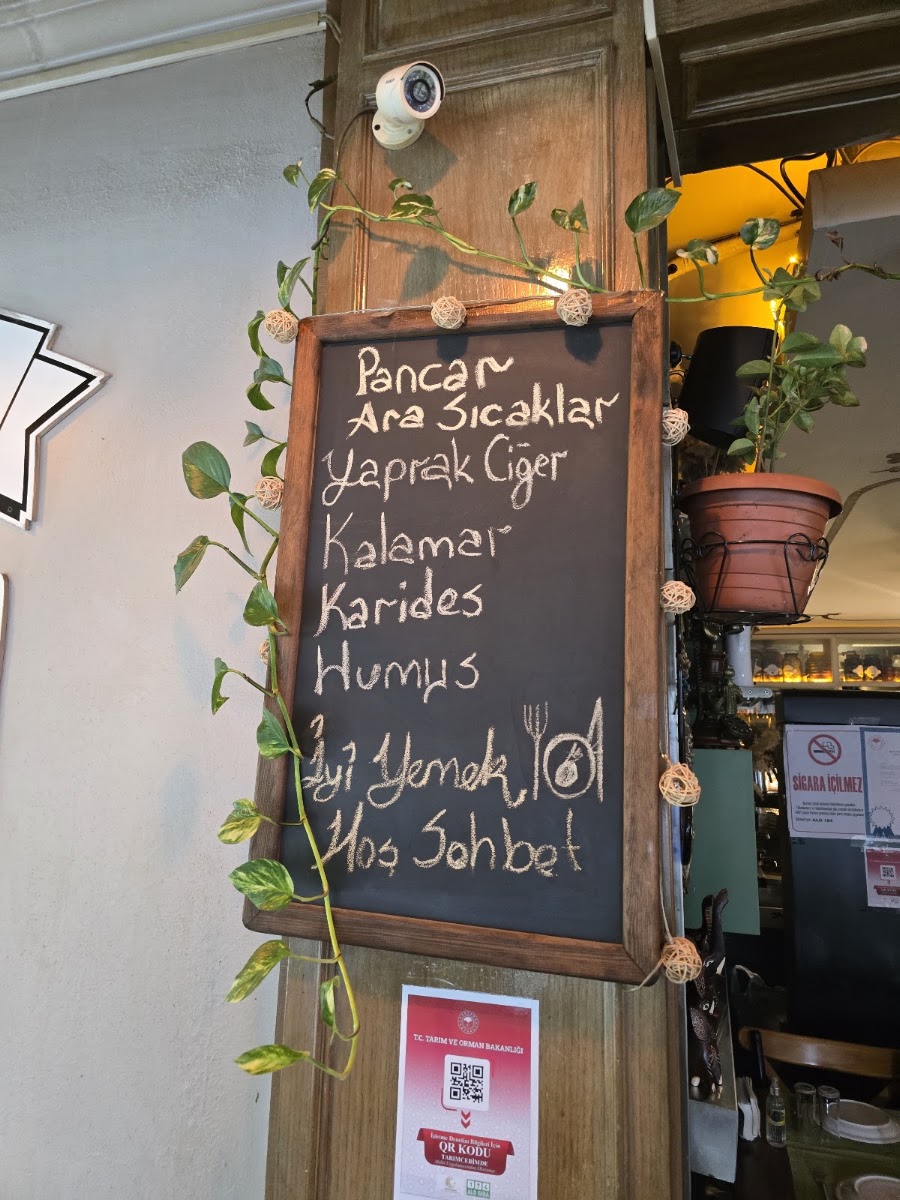 Pancar
Ara Sıcaklar
Yaprak Ciğer
Kalamar
Karides
Humus
İyi Yemek
Hoş Sohbet
SİGARA İÇİLMEZ
T.C. TARIM VE ORMAN BAKANLIĞI
İşletme Denetim Bilgileri İçin
QR KODU
TARIMCEBİMDE